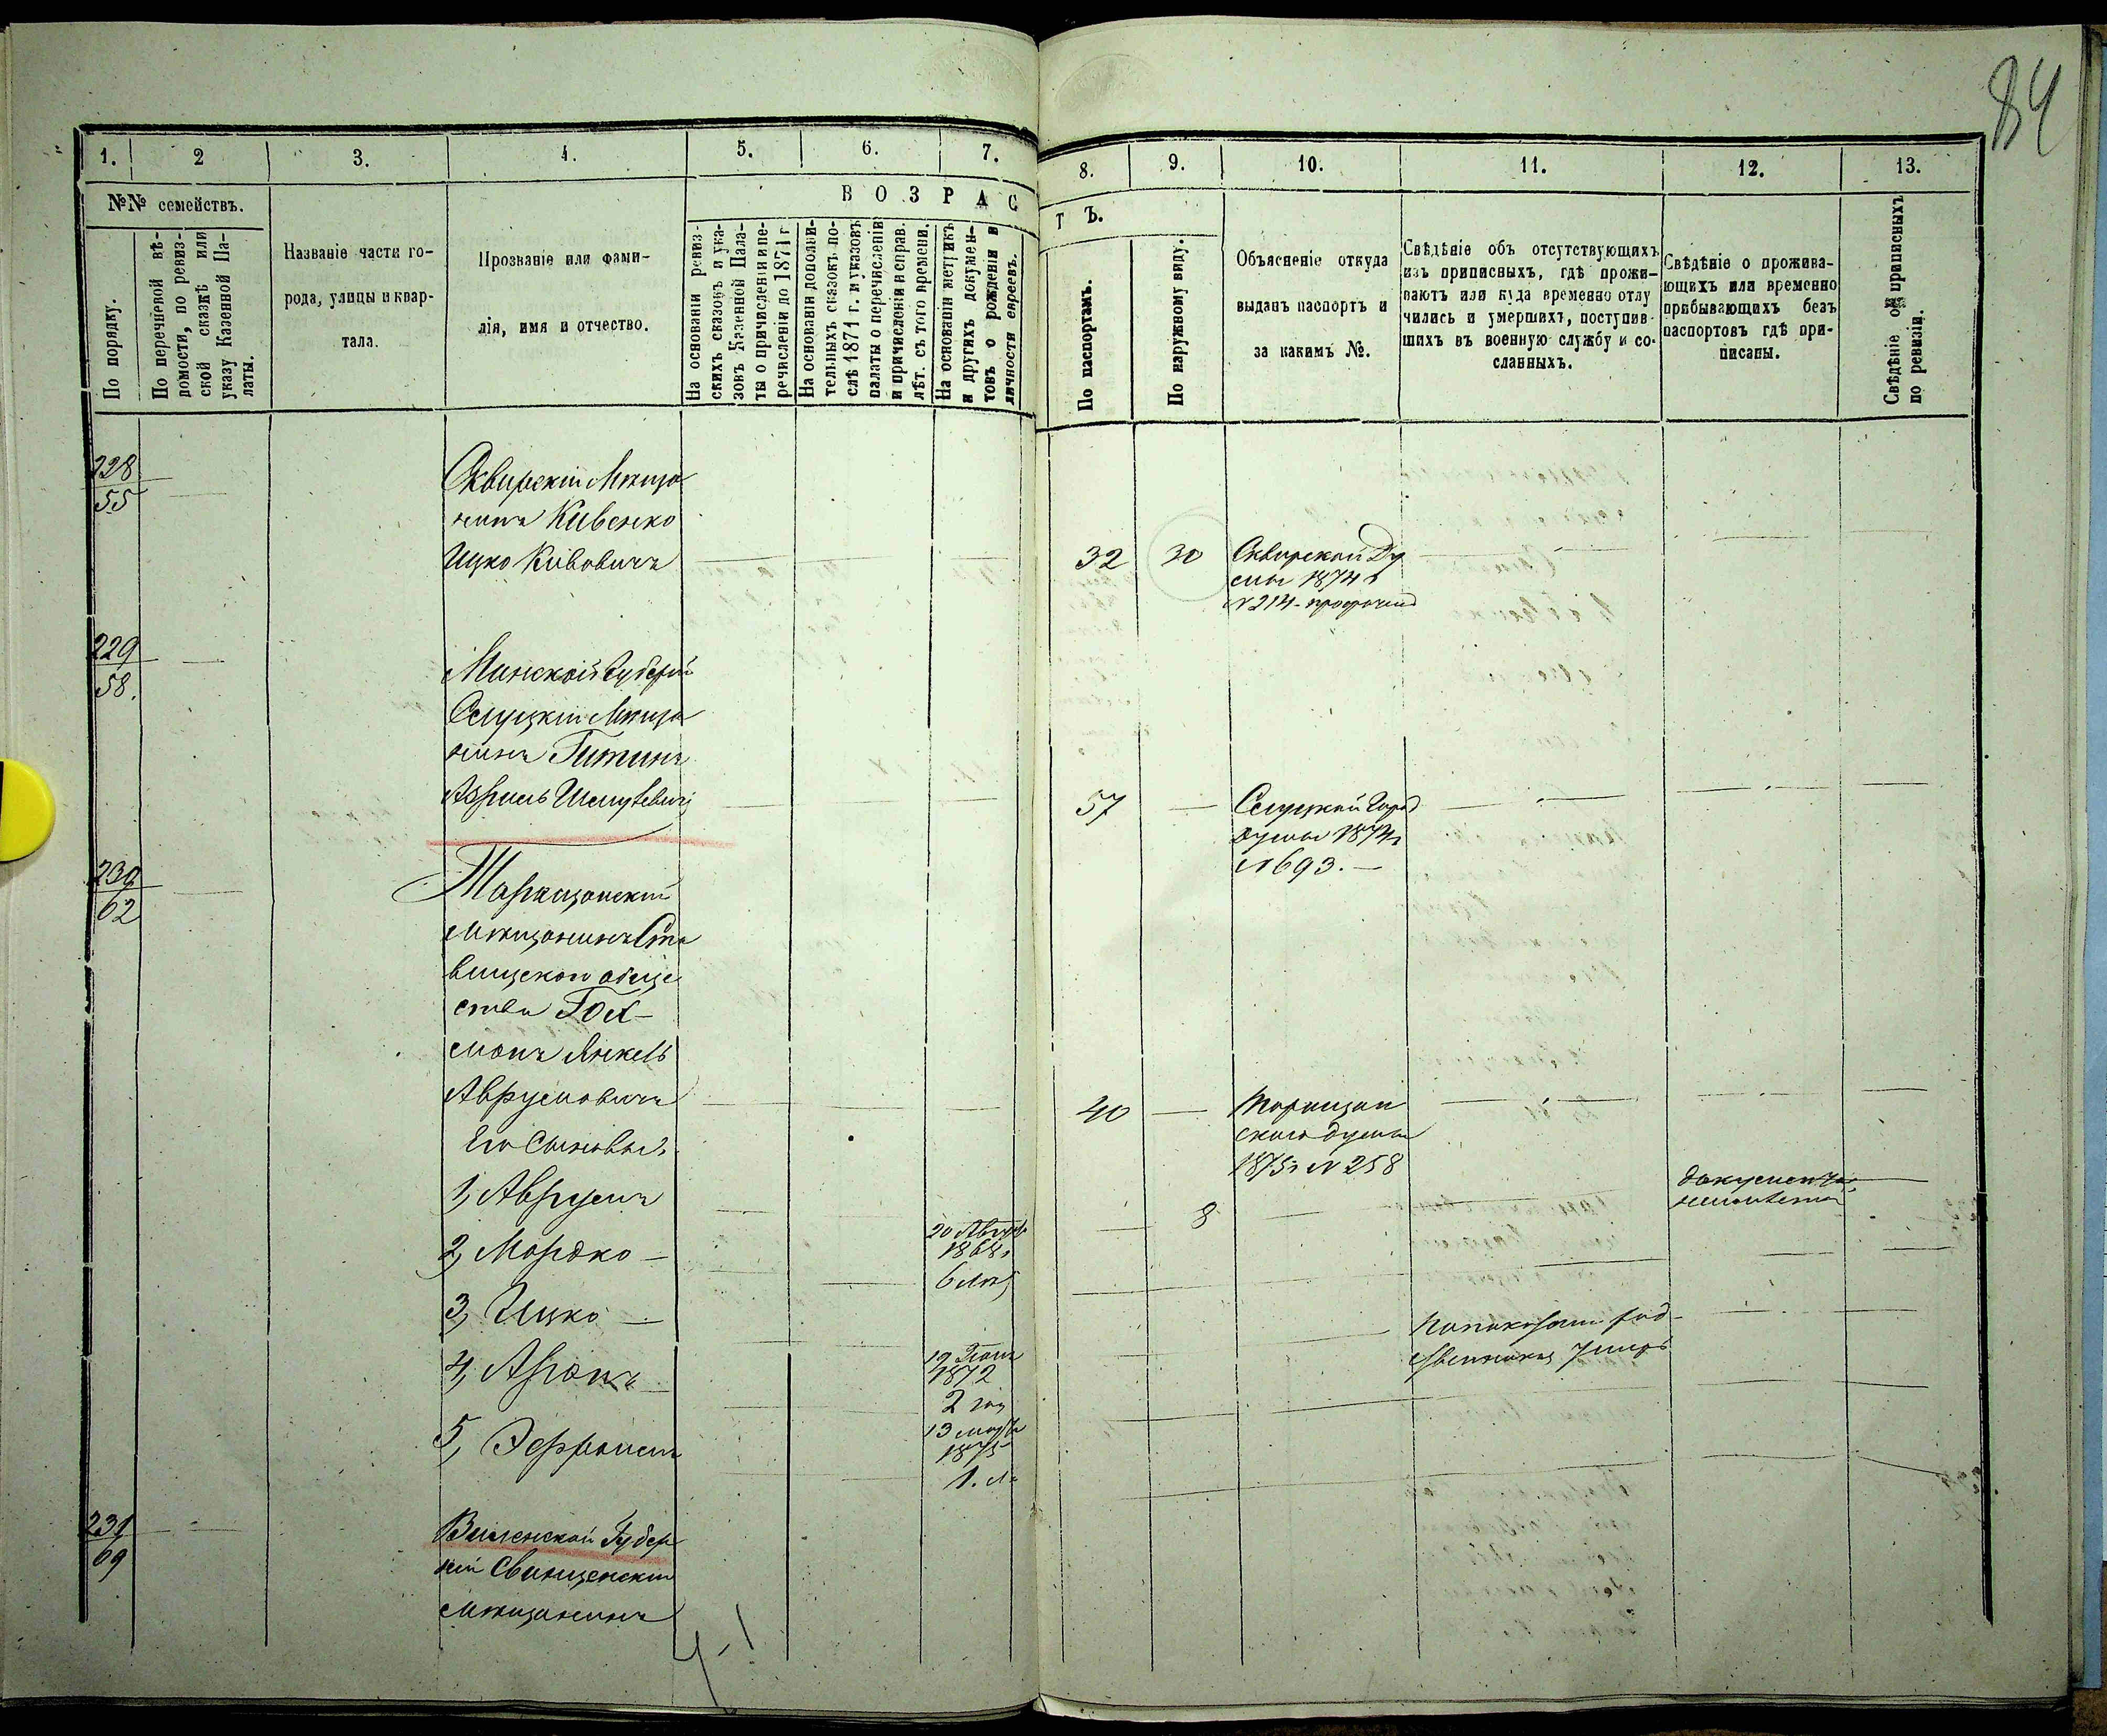 84
1. 2 3. 4. 5. 6. 7. 8. 9. 10. 11. 12. 13.
№№ семействъ.
По порядку.
По перечневой вѣ-
домости, по ревиз-
ской сказкѣ или
указу Казенной Па-
латы.
Названіе части го-
рода, улицы и квар-
тала.
Прозваніе или фами-
лія, имя и отчество.
ВОЗРАС
ТЪ.
На основаніи ревиз-
скихъ сказокъ и ука-
зовъ Казенной Пала-
ты о причисленіи и пе-
речисленіи до 1871 г.
На основаніи дополни-
тельныхъ сказокъ по-
слѣ 1871 г. и указовъ
палаты о перечисленіи
и причисленіи и справ.
лѣт. съ того времени.
На основаніи метрикъ
и другихъ докумен-
товъ о рожденіи и
личности евреевъ.
По паспортамъ.
По наружному виду.
Объясненіе откуда
выданъ паспортъ и
за какимъ №.
Свѣдѣніе объ отсутствующихъ
изъ приписныхъ, гдѣ прожи-
ваютъ или куда временно отлу
чились и умершихъ, поступив-
шихъ въ военную службу и со-
сланныхъ.
Свѣдѣніе о прожива-
ющихъ или временно
пребывающихъ безъ
паспортовъ гдѣ при-
писаны.
Свѣдѣніе о приписныхъ
по ревизіи.
228
55
Сквирскій Мѣща
нинъ Кивенко
Ицко Кивовичъ
32 30 Сквирской Ду
мы 1874 г
№ 214 - просрочен
229
58.
Минской Губерніи
Слуцкій Мѣща
нинъ Гитинъ
Азріель Шмулевичъ
57 Слуцкой Город
думы 1874 г
№ 693. —
230
62
Таращанскій
мѣщанинъ Ста
вищскаго обще
ства Гох-
манъ Янкель
Аврумовичъ
40 Таращан
ской думы
1875 г № 258
Его Сыновья
1, Аврумъ
8
документа
неимѣетъ
2, Мордко —
20 Август
1868 г
6 лѣт
3, Ицко —
Попоказанію род-
ственника умеръ
4, Аронъ
1872
2 год
5, Эфроимъ
13 марта
1875
1. л
231
69
Виленской Губер
ніи Свенцянскій
мѣщанинъ